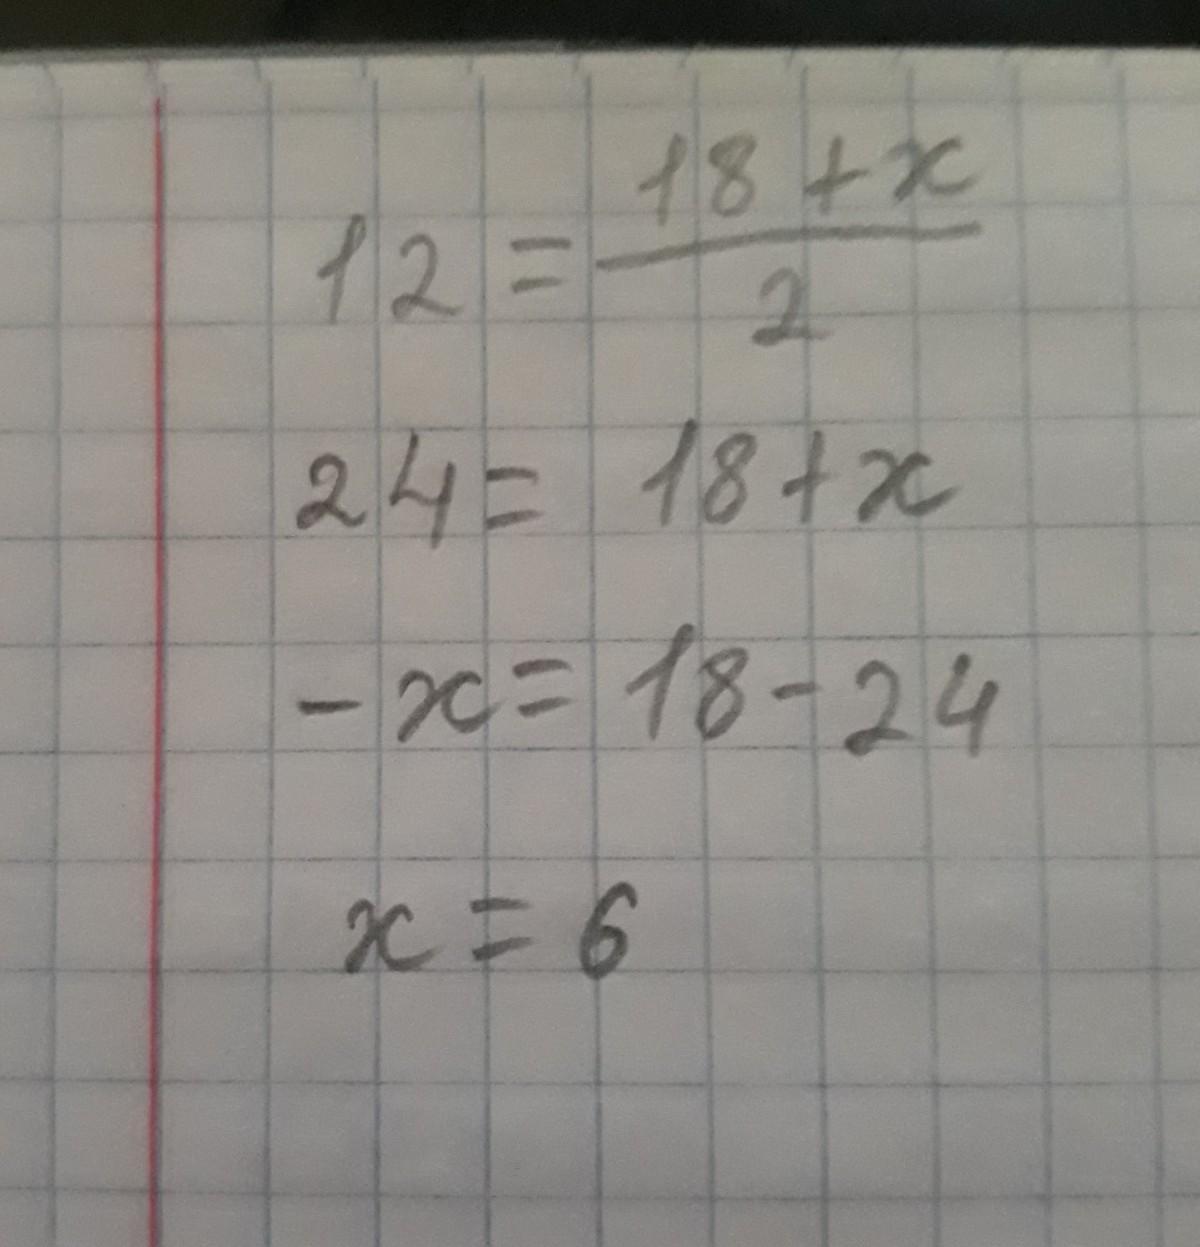 12 = (18 + x)/2
24 = 18 + x
- x = 18 - 24
x = 6